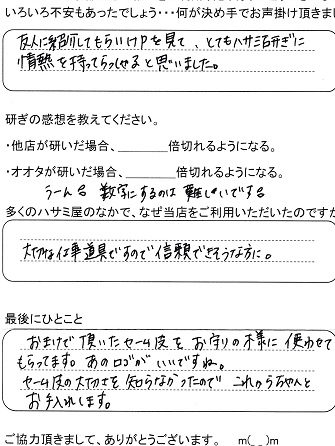 いろいろ不安もあったでしょう・・・何が決め手でお声掛け頂きまし
友人に紹介してもらいHPを見て、とてもハサミ研ぎに
情熱を持ってらっしゃると思いました。
研ぎの感想を教えてください。
・他店が研いだ場合、________倍切れるようになる。
・オオタが研いだ場合、________倍切れるようになる。
うーん 数字にするのは難しいでする
多くのハサミ屋のなかで、なぜ当店をご利用いただいたのですか
大切な仕事道具ですので信頼できそうな方に。
最後にひとこと
おまけで頂いたセーム皮をお守りの様に使わせて
もらってます。あのロゴがいいですね。
セーム皮の大切さを知らなかったので これからちゃんと
お手入れします。
ご協力頂きまして、ありがとうございます。 m(_ _)m